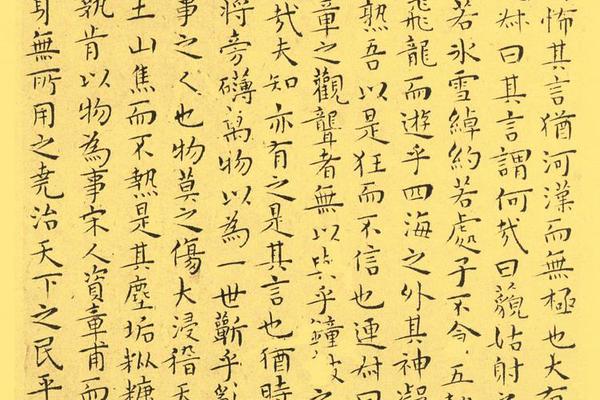 怖其言猶河漢而無極也大有
叔曰其言謂何哉曰藐姑射之
若氷雪綽約若處子不食五穀
飛龍而遊乎四海之外其神凝
熟吾以是狂而不信也連叔曰
章之觀聾者無以與乎鐘鼓之
哉夫知亦有之是其言也猶時
將旁礴萬物以為一世蘄乎亂
事之人也物莫之傷大浸稽天
土山焦而不熱是其塵垢粃糠
孰肯以物為事宋人資章甫而
身無所用之堯治天下之民平